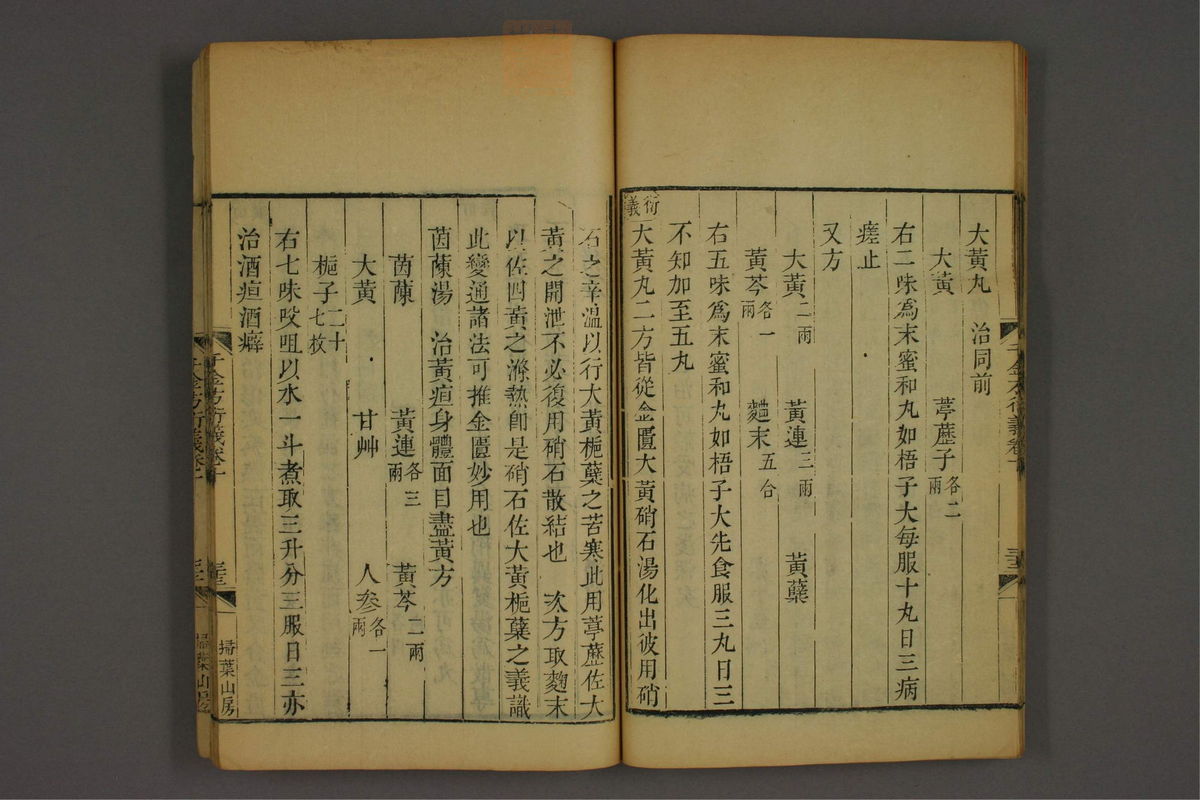 大黃丸　治同前
大黃　葶藶子各二兩
右二味爲末蜜和丸如梧子大每服十丸日三病
瘥止
又方
大黃二兩　黃連三兩　黃蘗
黃芩各一兩　麯末五合
右五味爲末蜜和丸如梧子大先食服三丸日三
不知加至五丸
衍義
大黃丸二方皆從金匱大黃硝石湯化出彼用硝
石之辛溫以行大黃梔蘗之苦寒此用葶藶佐大
黃之開泄不必復用硝石散結也　次方取麴末
以佐四黃之滌熱卽是硝石佐大黃梔蘗之義識
此變通諸法可推金匱妙用也
茵蔯湯　治黃疸身體面目盡黃方
茵蔯　黃連各三兩　黃芩二兩
大黃　甘艸　人參各一兩
梔子二十七枚
右七味㕮咀以水一斗煮取三升分三服日三亦
治酒疸酒癖
千金方衍義卷十
掃葉山房